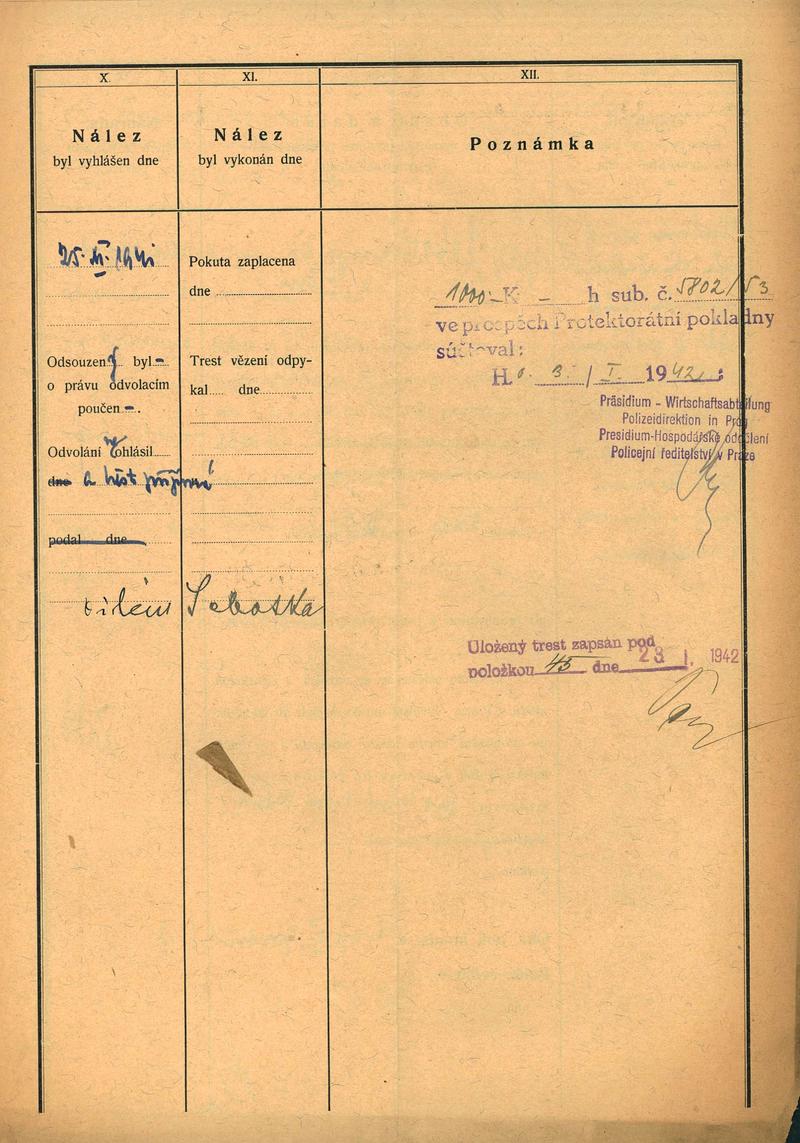 X.
Nález
byl vyhlášen dne
25. XI. 1941
Odsouzen byl
o právu odvolacím
poučen .
Odvolání neohlásil
dne a trest přijímá
podal dne
XI.
Nález
byl vykonán dne
Pokuta zaplacena
dne
Trest vězení odpy-
kal dne
Vilém Sobotka
XII.
Poznámka
1000 K - h sub. č. 5802/53
ve prospěch Protektorátní pokladny
súčtoval:
3./I. 1942
Präsidium - Wirtschaftsabteilung
Polizeidirektion in Prag
Presidium-Hospodářské oddělení
Policejní ředitelství v Praze
Uložený trest zapsán pod
položkou 45 dne 23 I. 1942